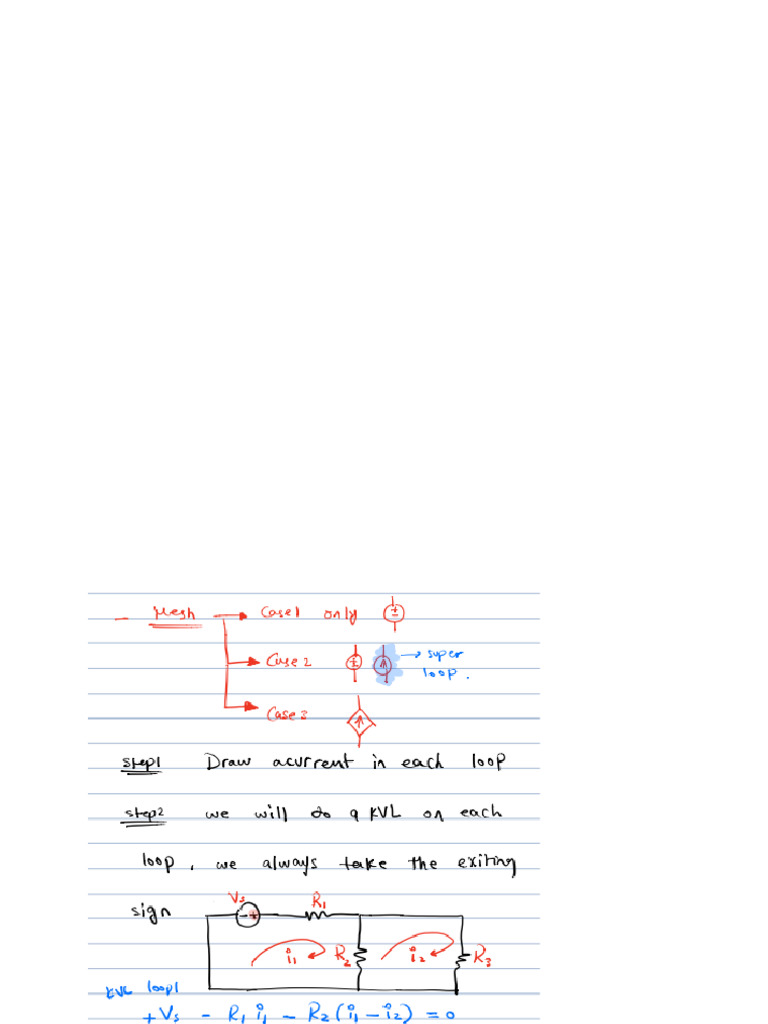 - Mesh → Case1 only ±
→ Case 2 ± ↑ → super
loop.
→ Case 3 ↑
step1 Draw acurrent in each loop
step2 we will do a KVL on each
loop, we always take the exiting
sign
Vs - + R1
i1 R2 i2 R3
KVL loop1
+Vs - R1 i1 - R2(i1 - i2) = 0